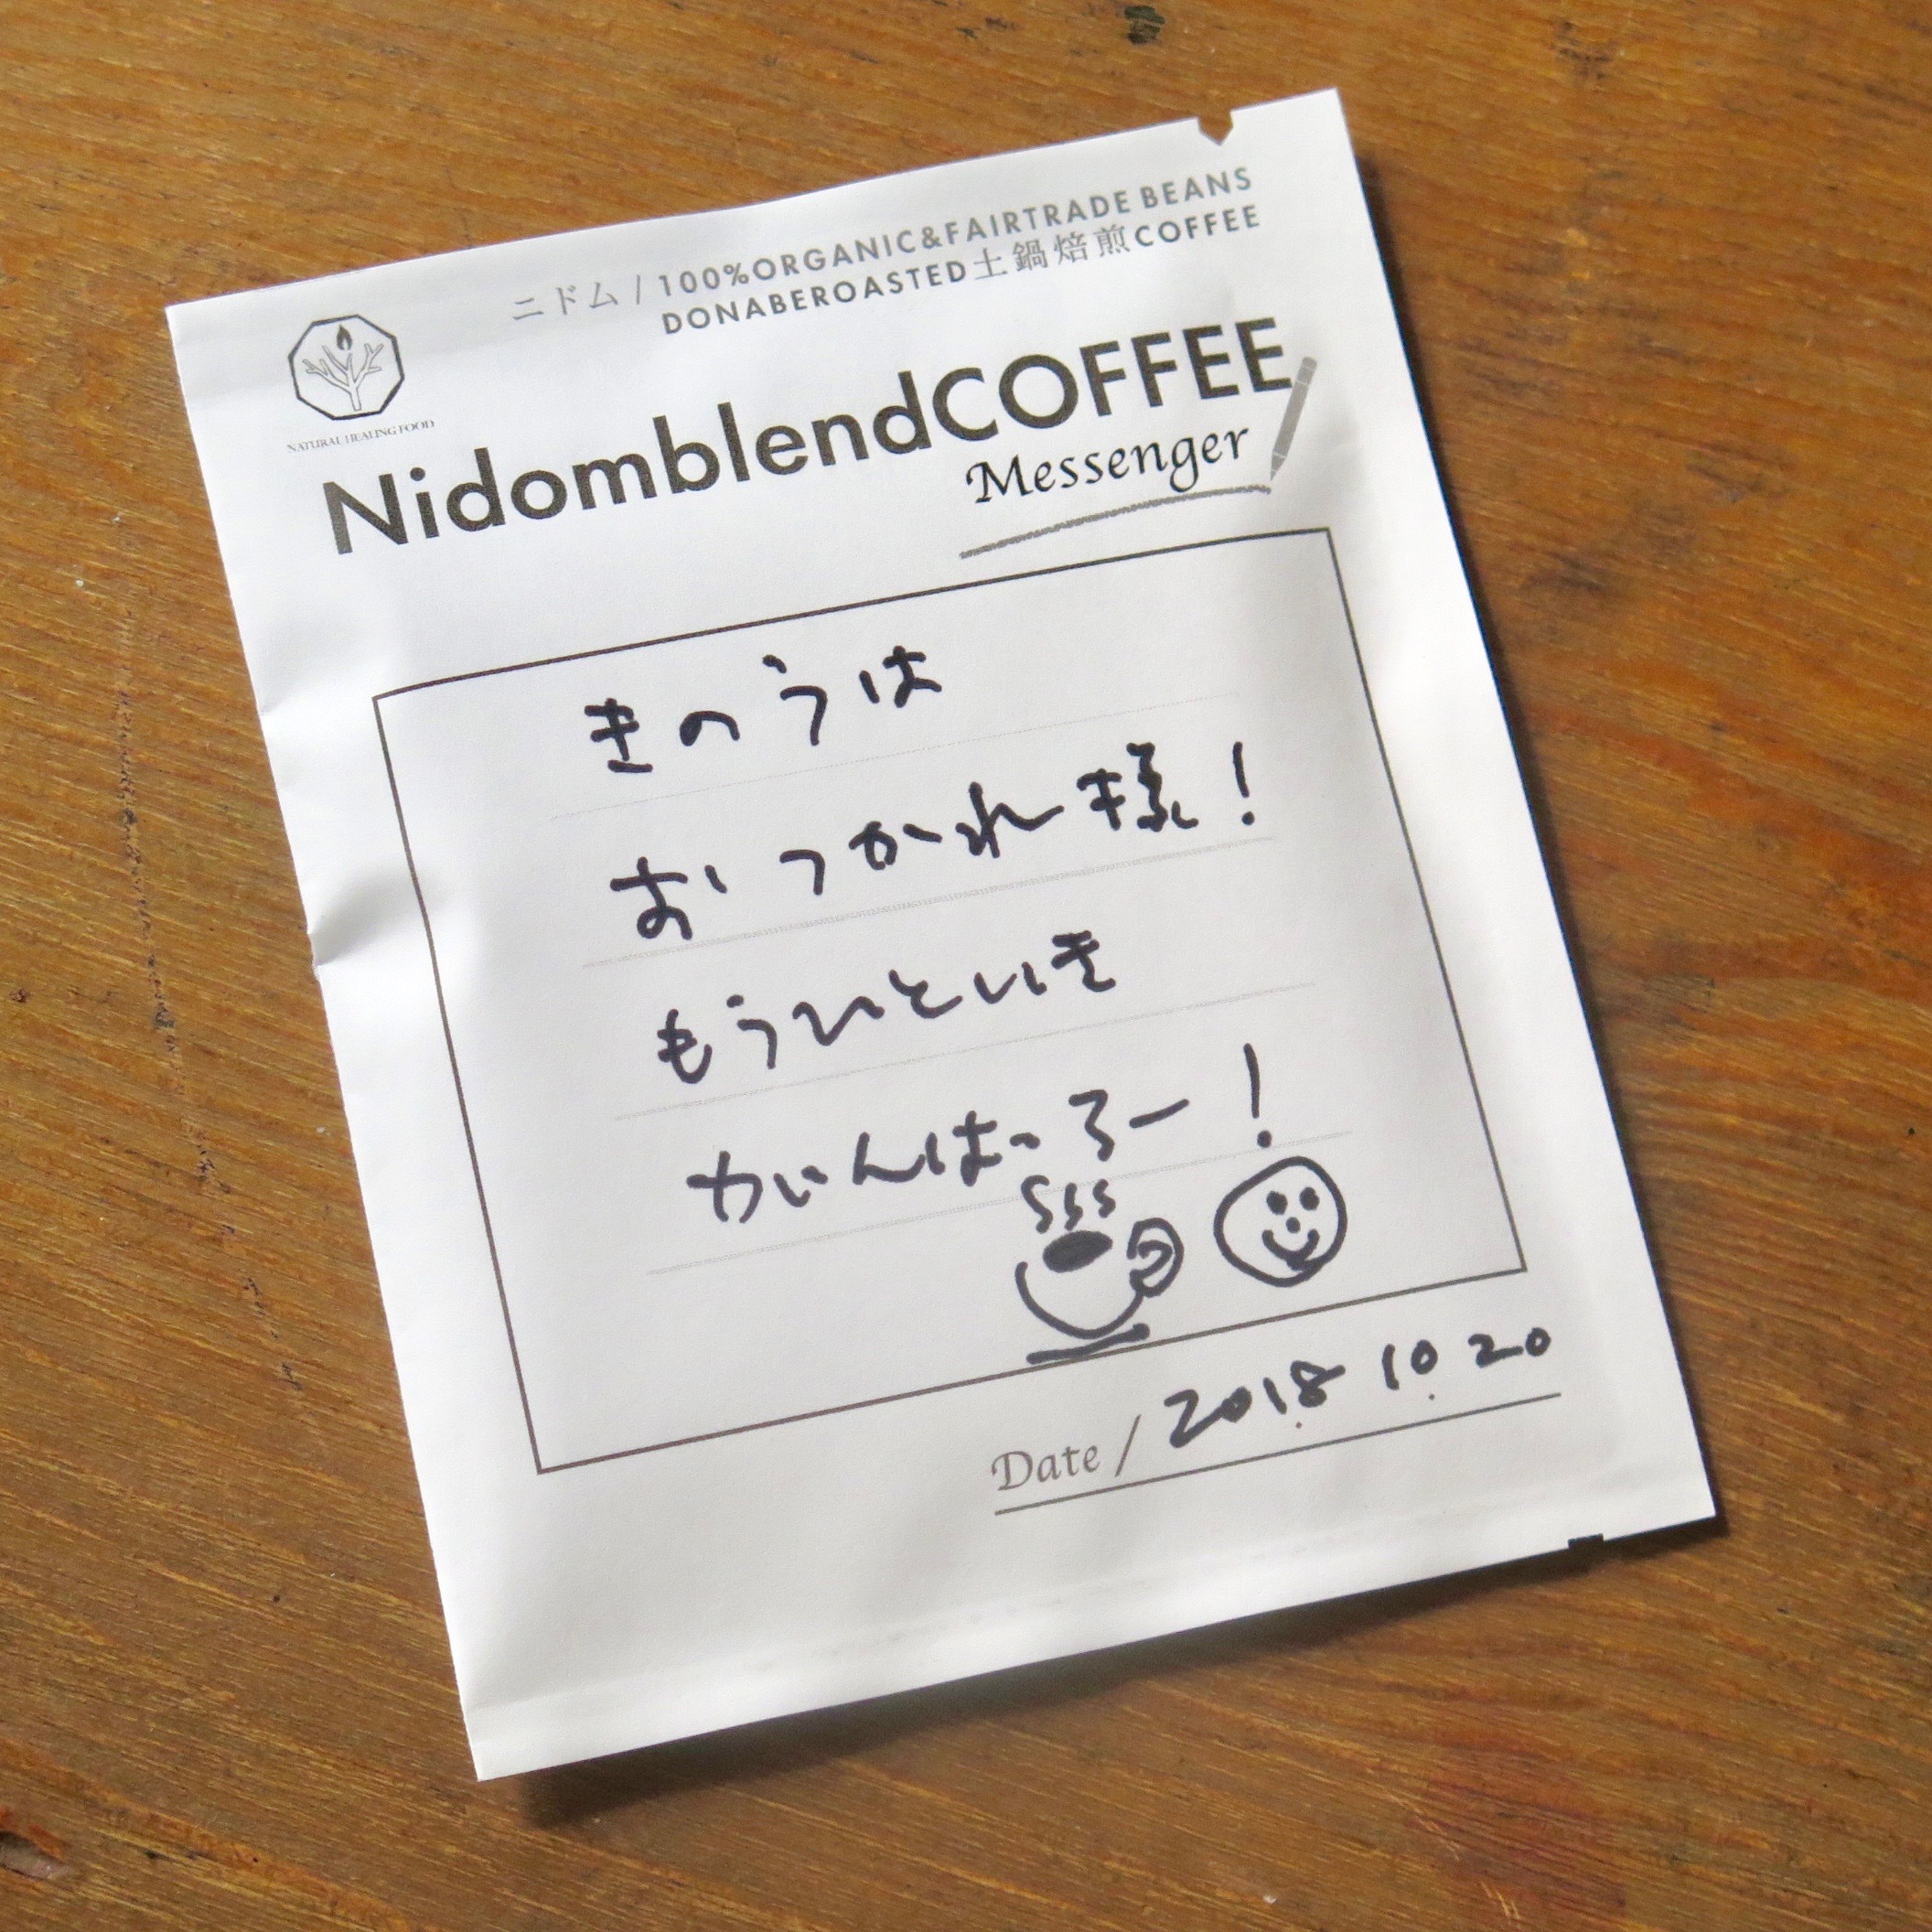 ニドム / 100%ORGANIC&FAIRTRADE BEANS
DONABEROASTED土鍋焙煎COFFEE
NATURAL HEALING FOOD
NidomblendCOFFEE
Messenger
きのうは
おつかれ様!
もうひといき
がんばろー!
Date / 2018.10.20